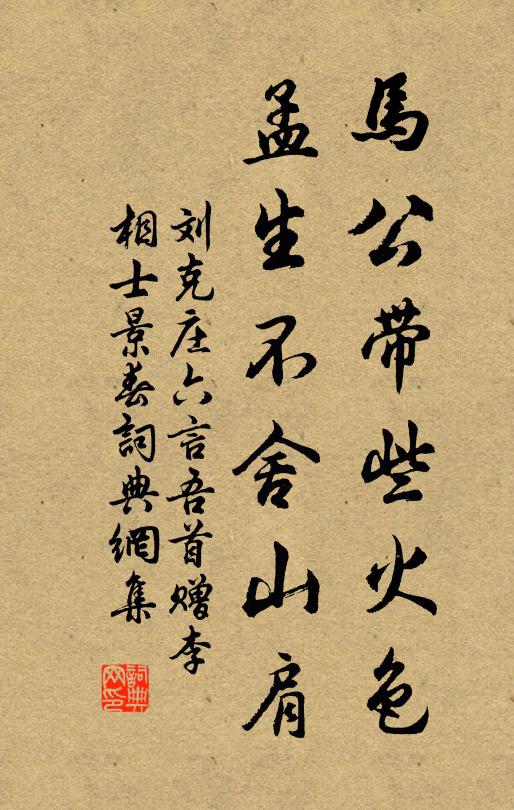 馬公帶些火色
孟生不舍山肩
刘克庄六言吾首赠李
相士景春詞典網集
詞典
网印